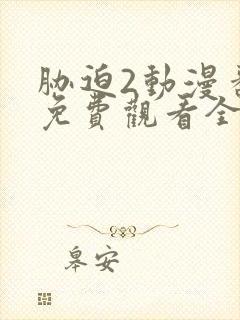 胁迫2動漫
免費觀看全
皋安